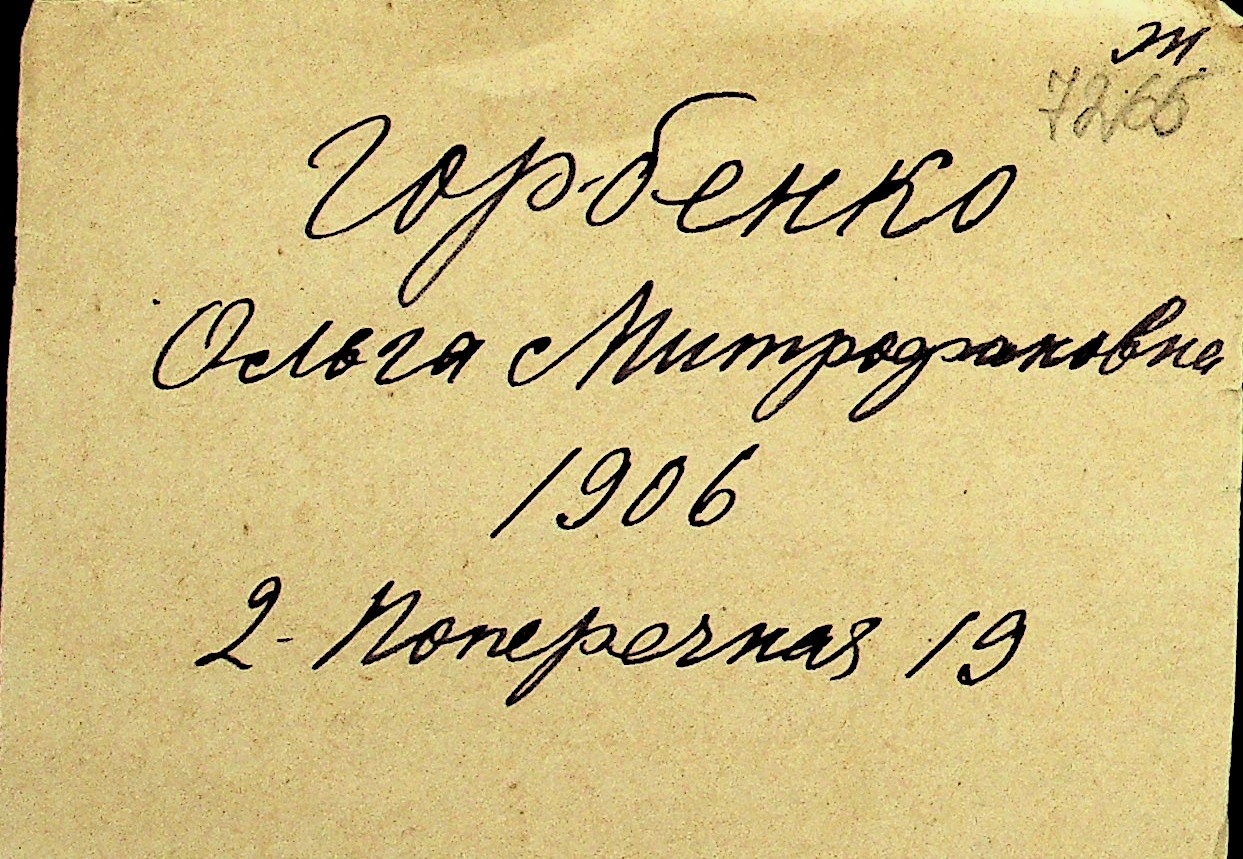 т.
7265
Горбенко
Ольга Митрофановна
1906
2-Поперечная 19